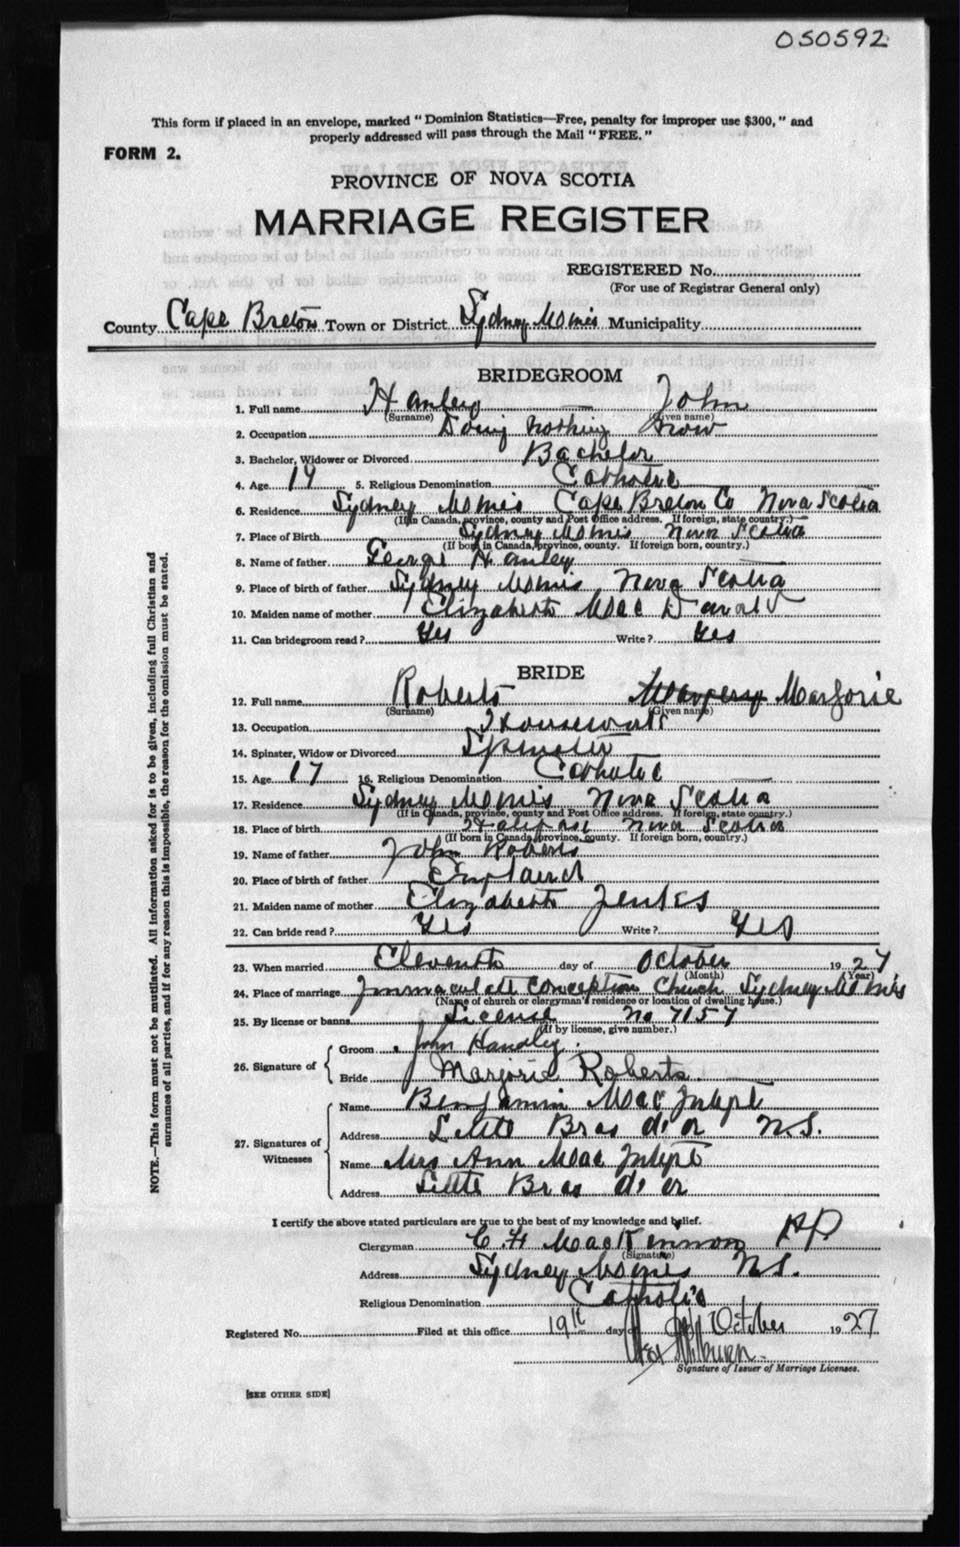 050592
This form if placed in an envelope, marked "Dominion Statistics—Free, penalty for improper use $300," and
properly addressed will pass through the Mail "FREE."
FORM 2.
PROVINCE OF NOVA SCOTIA
MARRIAGE REGISTER
REGISTERED No.
(For use of Registrar General only)
County Cape Breton Town or District Sydney Mines Municipality
BRIDEGROOM
1. Full name Hanley John
(Surname) (Given name)
2. Occupation Doing Nothing Now
3. Bachelor, Widower or Divorced Bachelor
4. Age 19 5. Religious Denomination Catholic
6. Residence Sydney Mines Cape Breton Co Nova Scotia
(If in Canada, province, county and Post Office address. If foreign, state country.)
7. Place of Birth Sydney Mines Nova Scotia
(If born in Canada, province, county. If foreign born, country.)
8. Name of father George Hanley
9. Place of birth of father Sydney Mines Nova Scotia
10. Maiden name of mother Elizabeth Mac Donald
11. Can bridegroom read? Yes Write? Yes
BRIDE
12. Full name Roberts Marjorie
(Surname) (Given name)
13. Occupation Housework
14. Spinster, Widow or Divorced Spinster
15. Age 17 16. Religious Denomination Catholic
17. Residence Sydney Mines Nova Scotia
(If in Canada, province, county and Post Office address. If foreign, state country.)
18. Place of birth Halifax Nova Scotia
(If born in Canada, province, county. If foreign born, country.)
19. Name of father John Roberts
20. Place of birth of father England
21. Maiden name of mother Elizabeth Jenks
22. Can bride read? Yes Write? Yes
23. When married Eleventh day of October 1927
(Month) (Year)
24. Place of marriage Immaculate Conception Church Sydney Mines
(Name of church or clergyman's residence or location of dwelling house.)
25. By license or banns License No 7157
(If by license, give number.)
26. Signature of
Groom John Handley.
Bride Marjorie Roberts.
27. Signatures of Witnesses
Name Benjamin Mac
Address Little Bras d'or N.S.
Name Mrs Ann Mac
Address Little Bras d'or
I certify the above stated particulars are true to the best of my knowledge and belief.
Clergyman C. H MacKinnon PP
(Signature)
Address Sydney Mines N.S.
Religious Denomination Catholic
Registered No. Filed at this office 19th day of October 1927
Signature of Issuer of Marriage Licenses.
[SEE OTHER SIDE]
NOTE.—This form must not be mutilated. All information asked for is to be given, including full Christian and
surnames of all parties, and if for any reason this is impossible, the reason for the omission must be stated.